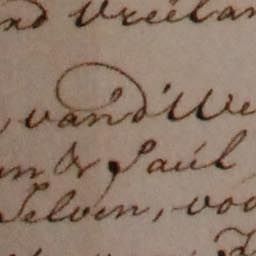 nd Vreelan
van d' We
en & Paul
Selven, voo